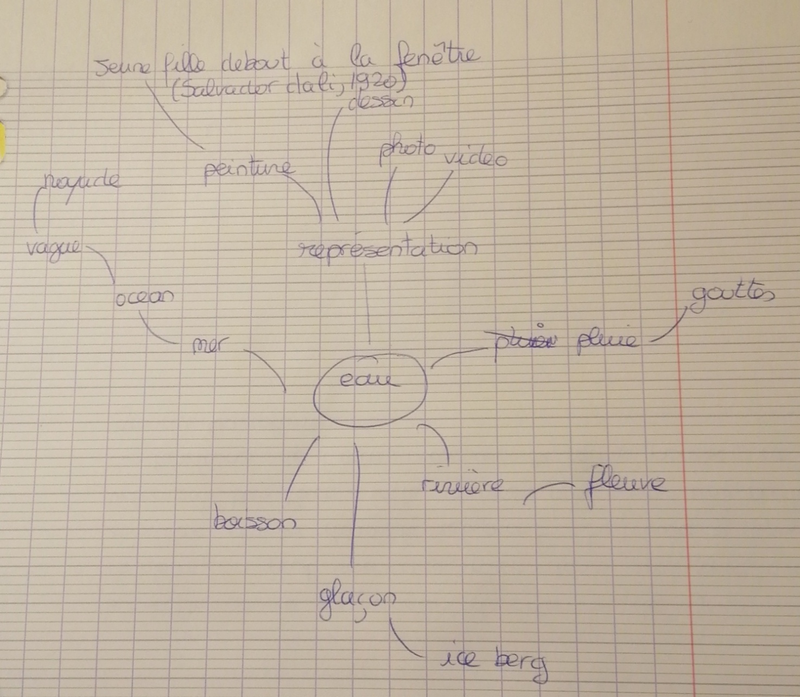 Jeune fille debout à la fenêtre
(Salvador dali, 1920)
dessin
photo
video
peinture
noyade
vague
représentation
ocean
gouttes
mer
pluie
eau
rivière
fleuve
boisson
glaçon
ice berg